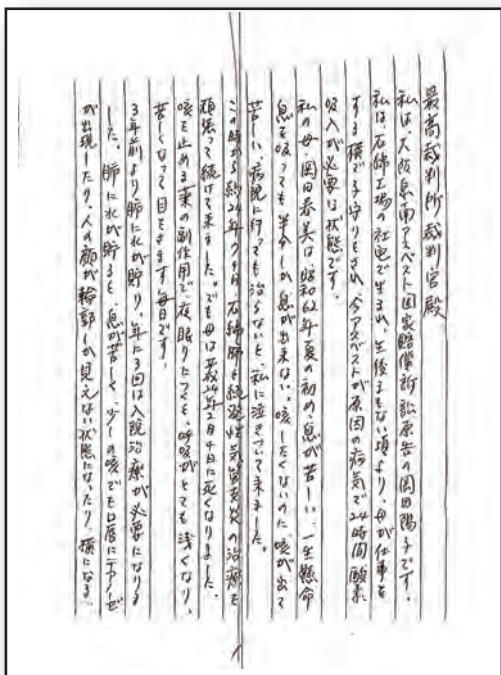 最高裁判所裁判官殿
私は、大阪泉南アスベスト国家賠償訴訟原告の岡田陽子です。
私は、石綿工場の社宅で生まれ、生後まもない頃より、母が仕事を
する横で子守りをされ、今アスベストが原因の病気で24時間酸素
吸入が必要な状態です。
私の母・岡田春美は、昭和62年夏の初め、息が苦しい、一生懸命
息を吸っても半分しか息が出来ない。咳したくないのに、咳が出て
苦しい、病院に行っても治らないと、私に泣きついて来ました。
この時から約24年7ヶ月、石綿肺と続発性気管支炎の治療を
頑張って続けて来ました。でも母は平成24年2月4日に死くなりました。
咳を止める薬の副作用で、夜眠りにつくも、呼吸がとても浅くなり、
苦しくなって目をさます毎日です。
3年前より肺に水が貯り、年に3回は入院治療が必要になりま
した。肺に水が貯ると、息が苦しく、少しの咳でも口唇にチアノーゼ
が出現したり、人の顔が輪郭しか見えない状態になったり、横になる、